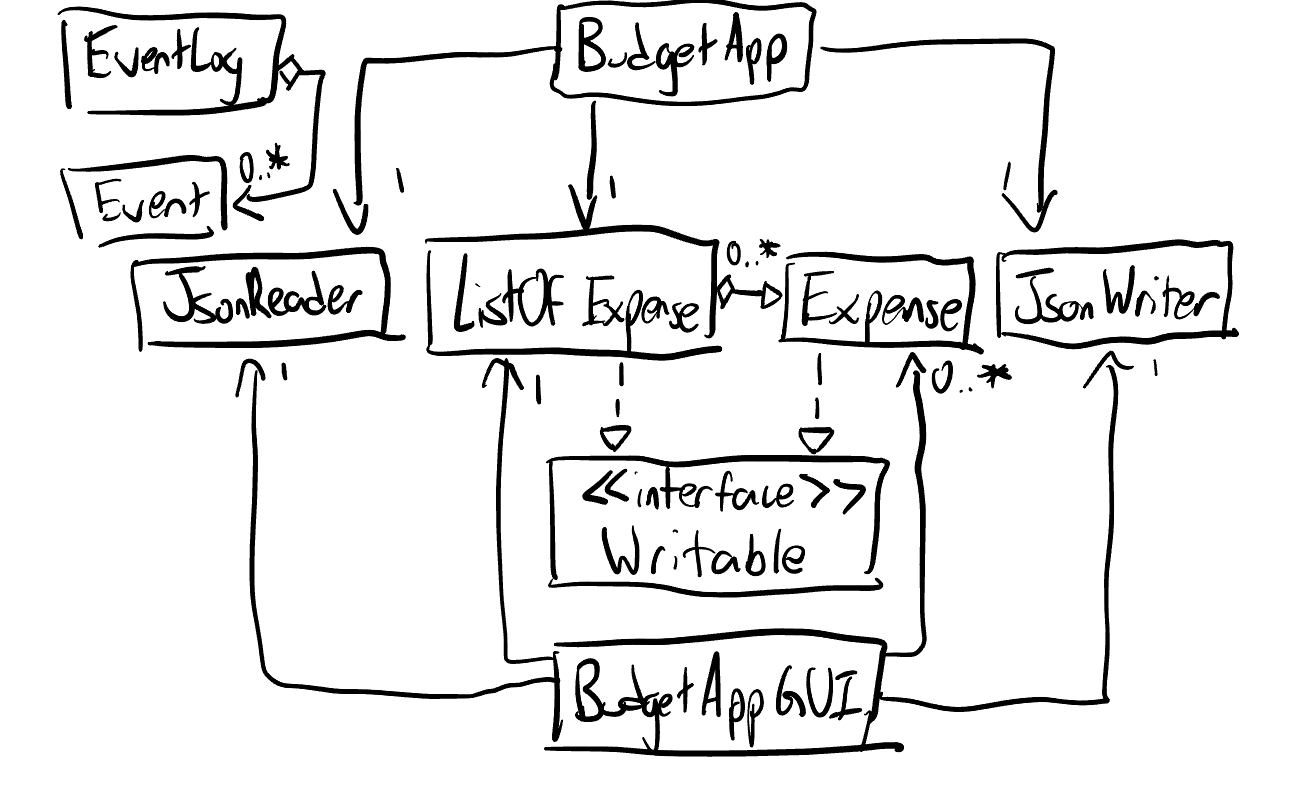 EventLog
BudgetApp
0..*
Event
1
1
1
0..*
JsonReader
ListOf Expense
Expense
JsonWriter
1
1
0..*
1
<<interface>>
Writable
BudgetAppGUI